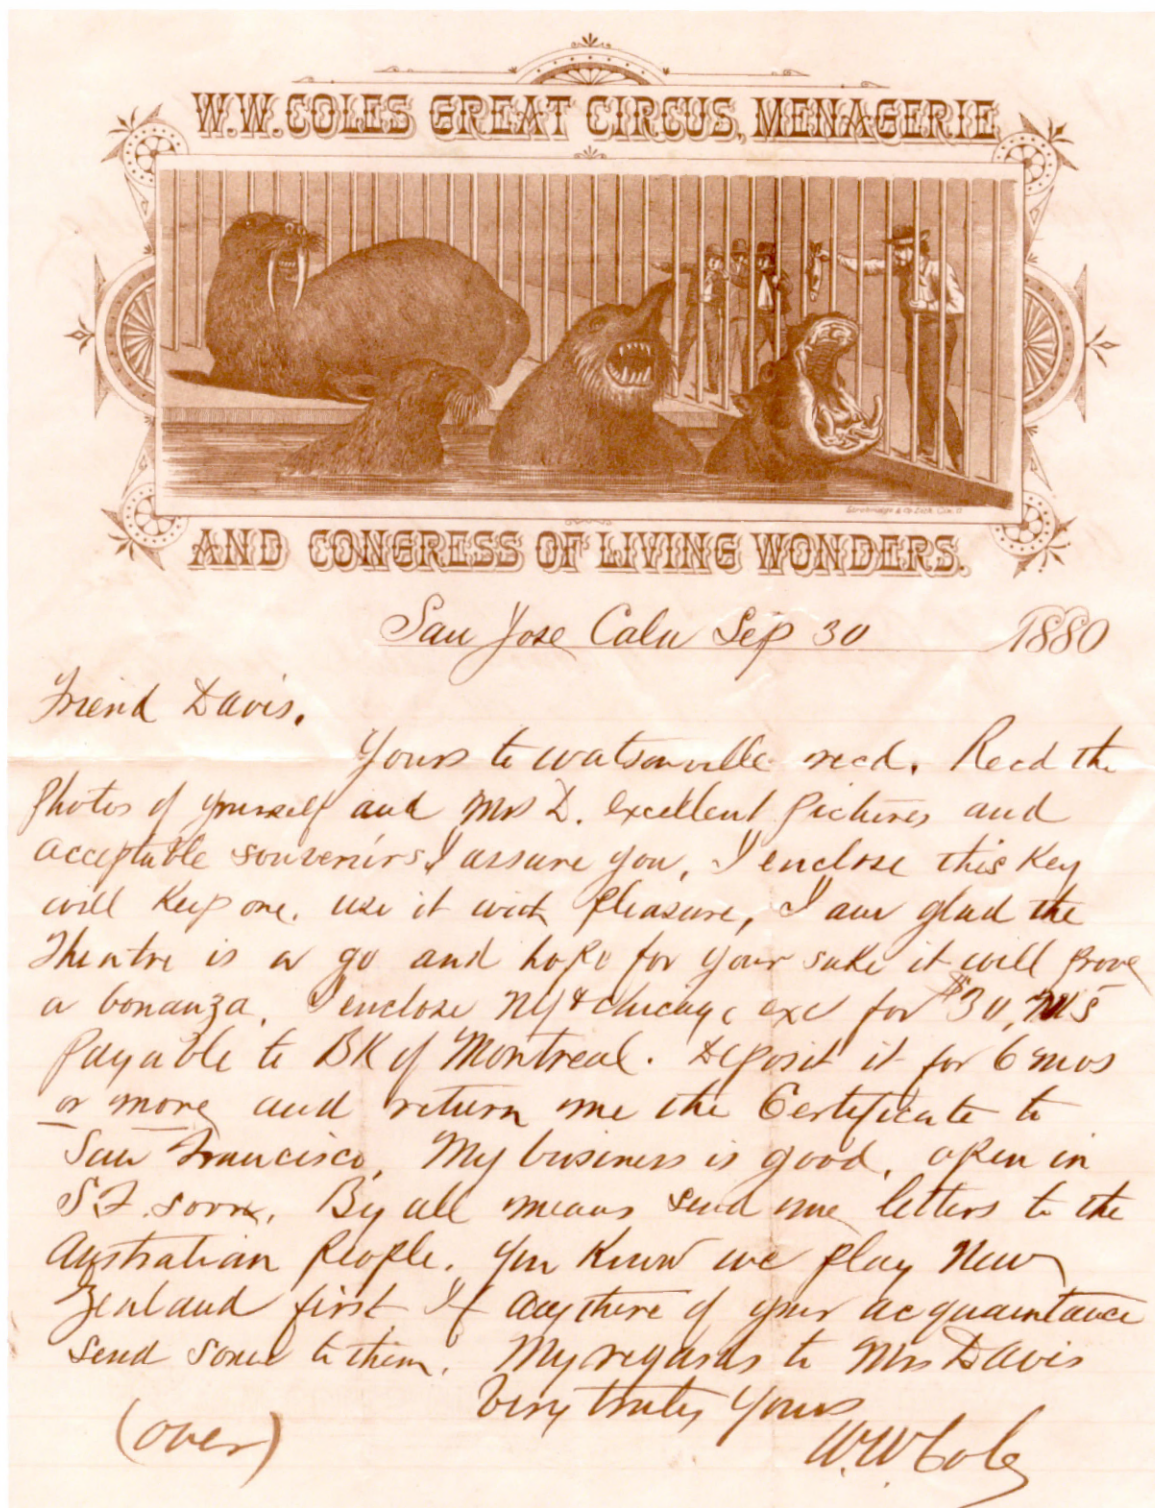 W.W. COLES GREAT CIRCUS, MENAGERIE
AND CONGRESS OF LIVING WONDERS.
San Jose Caln Sep 30 1880
Friend Davis.
Yours to Watsonville recd. Recd the
photos of yourself and Mrs D. excellent pictures and
acceptable souvenirs I assure you, I enclose this key
will keep one. use it with pleasure, I am glad the
Theatre is a go and hope for your sake it will prove
a bonanza. I enclose NY & Chicago exc for $30,
payable to BK of Montreal. Deposit it for 6 mos
or more and return me the Certificate to
San Francisco. My business is good. open in
S.F. soon. By all means send me letters to the
Australian people. You know we play New
Zealand first If any there of your acquaintance
send some to them. My regards to Mrs Davis
Very truly Yours
(over) W.W. Cole